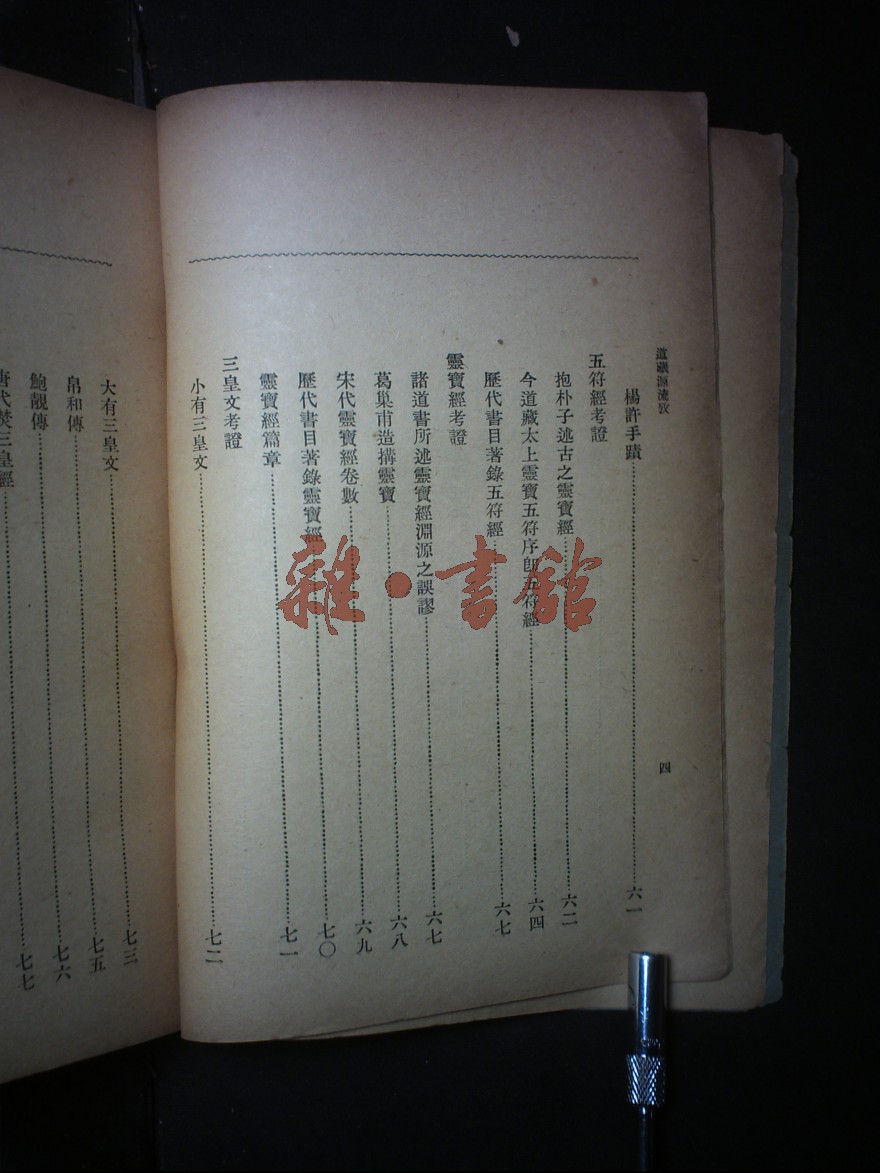 道藏源流攷
四
楊許手蹟……六一
五符經考證
抱朴子述古之靈寶經……六二
今道藏太上靈寶五符序卽五符經……六四
歷代書目著錄五符經……六七
靈寶經考證
諸道書所述靈寶經淵源之誤謬……六七
葛巢甫造搆靈寶……六八
宋代靈寶經卷數……六九
歷代書目著錄靈寶經……七〇
靈寶經篇章……七一
三皇文考證
小有三皇文……七二
大有三皇文……七三
帛和傳……七五
鮑靚傳……七六
唐代焚三皇經……七七
雜·書館